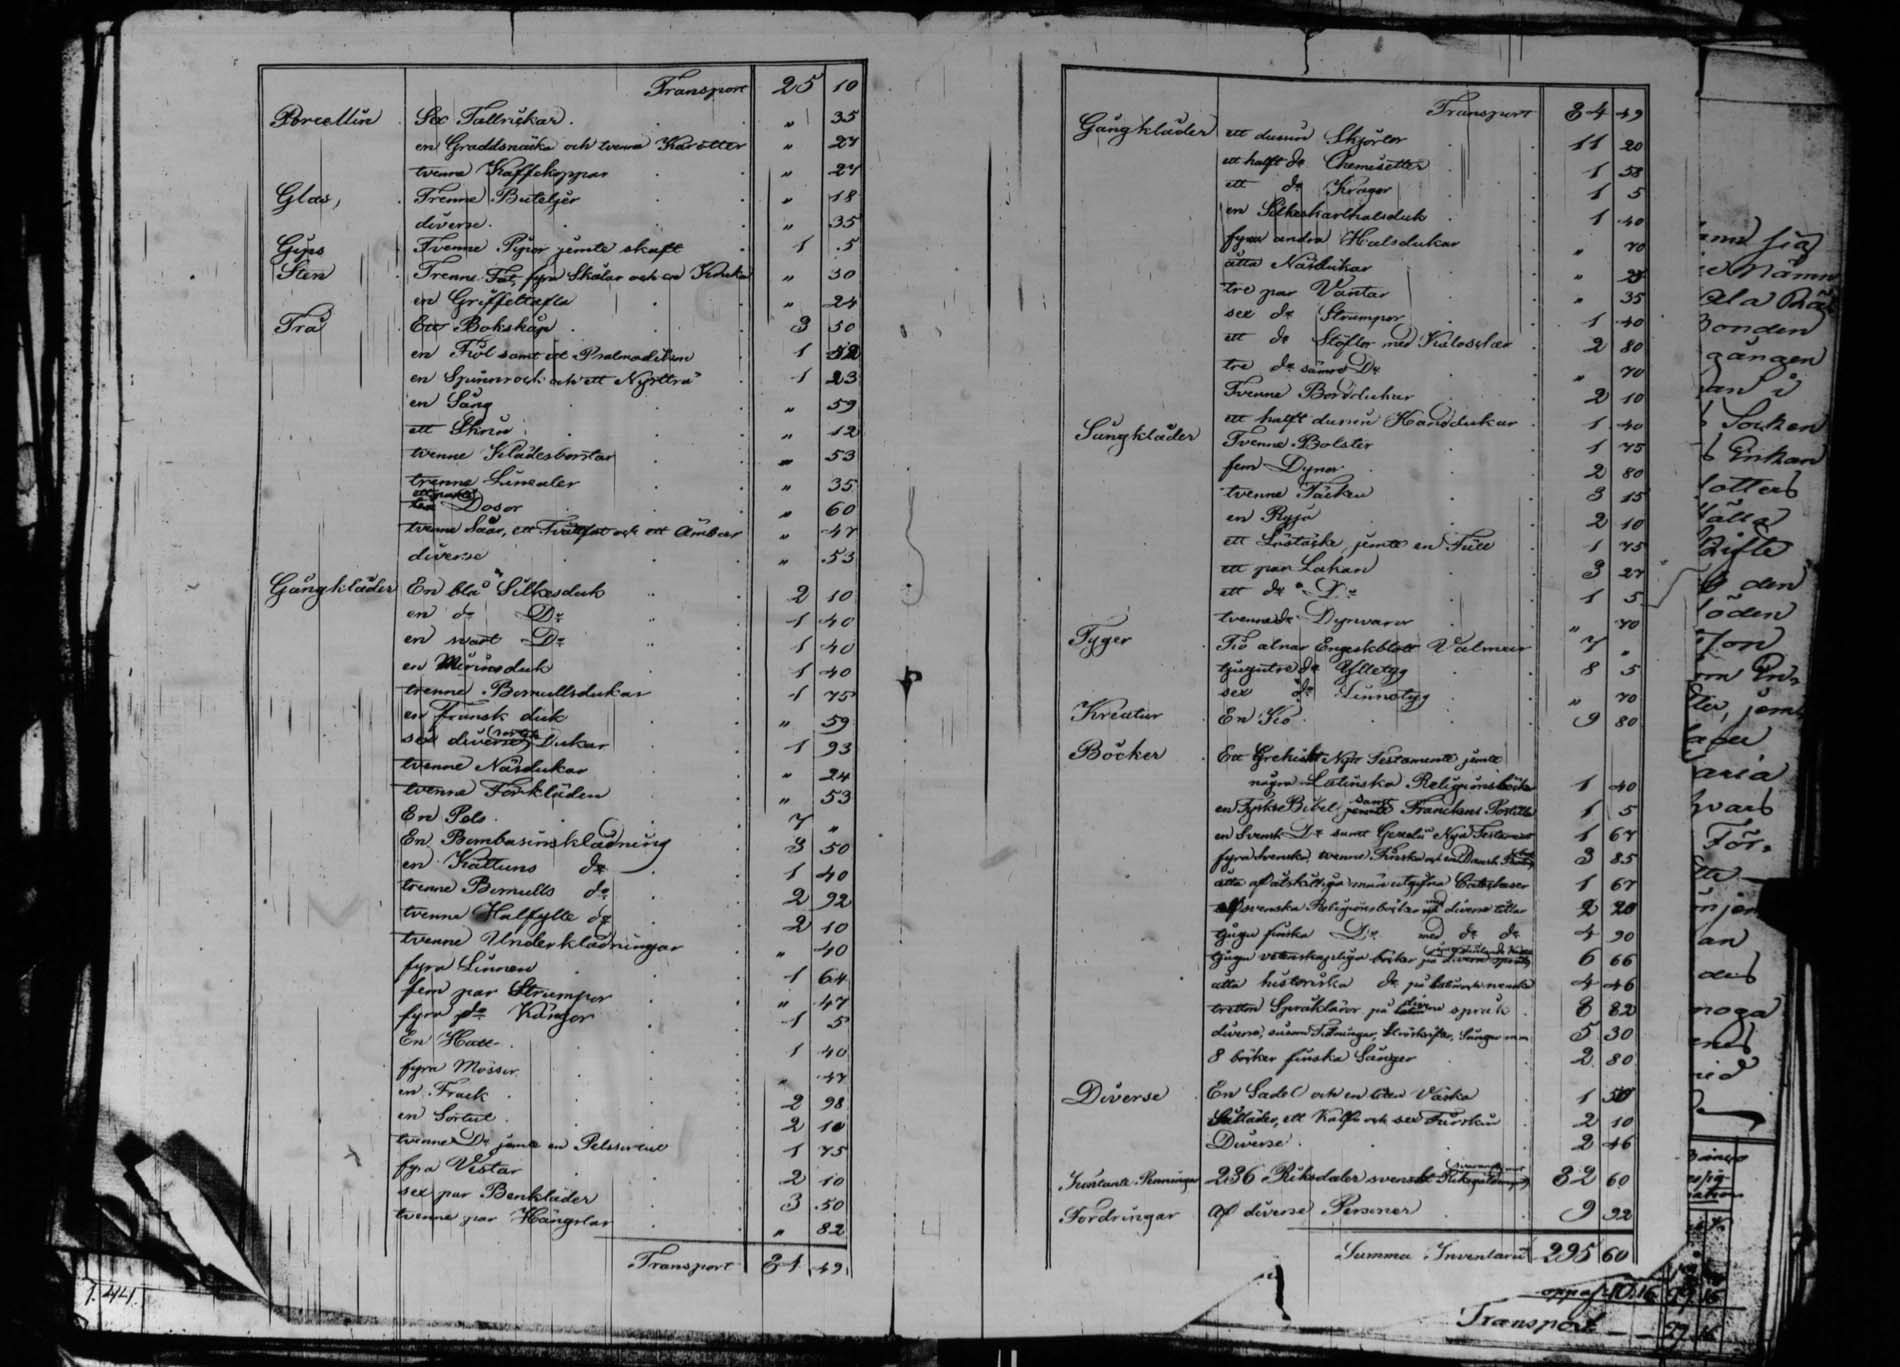 Transport 25 10
Porcellin Sex Tallrickar. " 35
en Gräddsnäcka och tvenne Karotter " 27
tvenne Kaffekoppar " 27
Glas, Trenne Buteljer " 18
diverse. " 35
Gips Tvenne Pipor jemte skaft 1 5
Sten Trenne Fat, fyra Skålar och en Kruka " 30
en Griffeltafla " 24
Trä Ett Bokskåp 3 50
en Fiol samt ett Psalmodikon 1
en Spinnrock och ett 1 23
en Säng " 59
ett Skrin " 12
tvenne Klädesborstar " 53
trenne Linealer " 35
Dosor " 60
tvenne Såar, ett Tvättfat och ett Ämbar " 47
diverse " 53
Gångkläder En blå Silkesduk 2 10
en do Do 1 40
en svart Do 1 40
en Merinsduk 1 40
trenne Bomullsdukar 1 75
en Fransk duk " 59
sex diverse Dukar 1 93
tvenne Näsdukar " 24
tvenne Förkläden " 53
En Pels 7 "
En Bombasinsklädning 3 50
en Kattuns do 1 40
trenne Bomulls do 2 92
tvenne Halfylle do 2 10
tvenne Underklädningar " 40
fyra Linnen 1 64
fem par Strumpor " 47
fyra do Kängor 1 5
En Hatt 1 40
fyra Mössor " 47
en Frack 2 98
en Sortut 2 10
tvenne Do jemte en Pelssortut 1 75
fyra Vestar 2 10
sex par Benkläder 3 50
tvenne par Hängslar " 82
Transport 84 49
Transport 84 49
Gångkläder ett dussin Skjortor 11 20
ett halft do Chemisetter 1 58
ett do Kragor 1 5
en Silkesharthalsduk 1 40
fyra andra Halsdukar " 70
åtta Näsdukar "
tre par Vantar " 35
sex do Strumpor 1 40
ett do Stöflor med Kaloscher 2 80
tre do sämre Do " 70
Tvenne Borddukar 2 10
ett halft dussin Handdukar 1 40
Sängkläder Tvenne Bolster 1 75
fem Dynor 2 80
tvenne Täcken 3 15
en Ryja 2 10
ett Löstäcke jemte en Fäll 1 75
ett par Lakan 3 27
ett do Do 1 5
tvenne do Dynvaror " 70
Tyger Tio alnar Engeskblått Valmar 7 "
tjugutre do Ylletyg 8 5
sex do Linnetyg " 70
Kreatur En Ko 9 80
Böcker Ett Grekiskt Nytt Testamente jemte
några Latinska Religionsböcker 1 40
en Tyska Bibel samt Franckens Postilla 1 5
en Svensk Do samt Gezelii Nya Testament 1 67
fyra Svenska, tvenne Finska och en Dansk 3 85
åtta af åtskilliga män utgifna Catecheser 1 67
svenska Religionsböcker med diverse titlar 2 20
tjugu finska Do med do do 4 90
tjugu vetenskapliga böcker på 6 66
åtta historiska do på 4 46
tretton Språkläror på diverse språk 8 82
diverse, såsom Tidningar, Ströskrifter, Sånger m m 5 30
8 böcker finska Sånger 2 80
Diverse En Sadel och en liten Väska 1
ett Kalf- och sex Fårskin 2 10
Diverse 2 46
Kontante Penningar 236 Riksdaler svenskt 82 60
Fordringar Af diverse Personer 9 92
Summa Inventarii 295 60
Transport 99 16
7.441.
Bonden
gången
Socken
Enkan
dotters
den
aria
För-